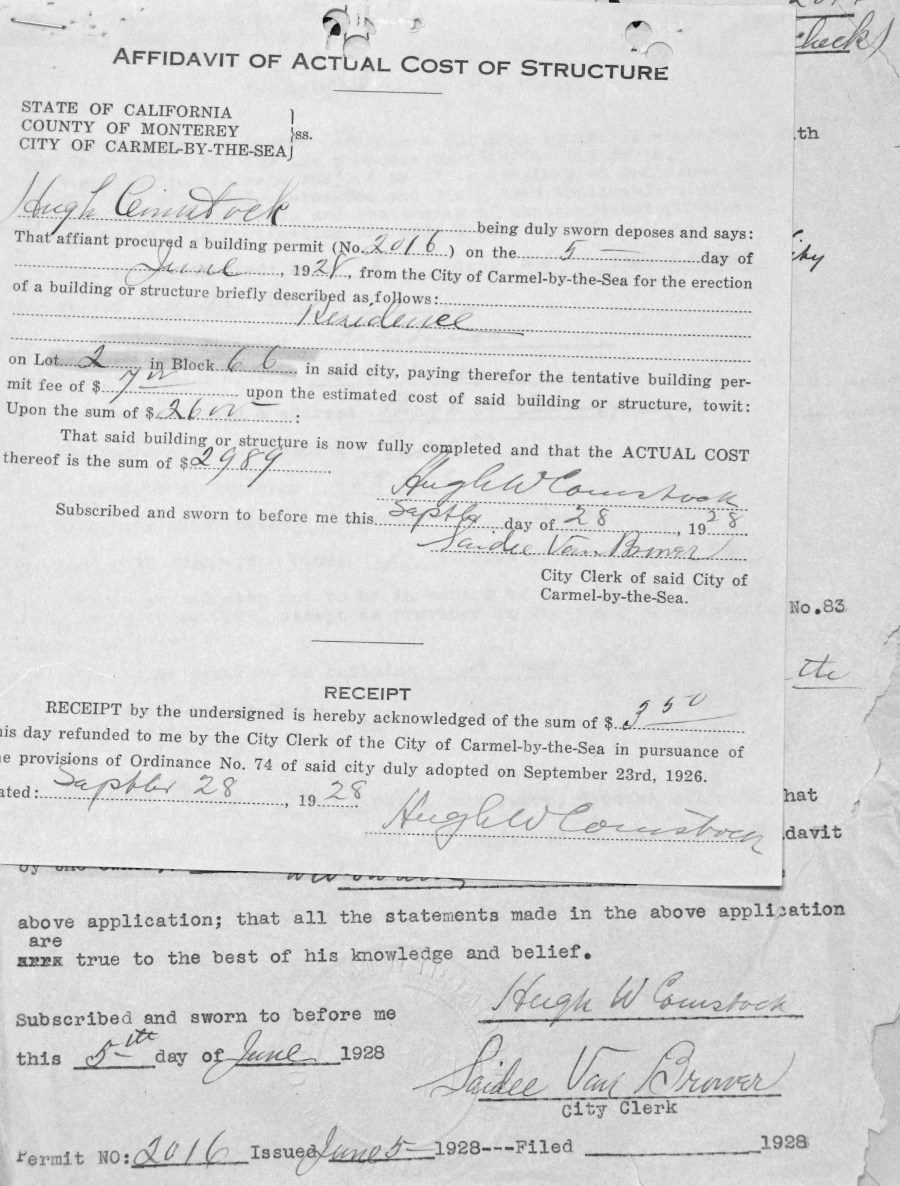 AFFIDAVIT OF ACTUAL COST OF STRUCTURE
STATE OF CALIFORNIA
COUNTY OF MONTEREY
CITY OF CARMEL-BY-THE-SEA
ss.
Hugh Comstock being duly sworn deposes and says:
That affiant procured a building permit (No. 2016) on the 5 day of
June, 1928, from the City of Carmel-by-the-Sea for the erection
of a building or structure briefly described as follows:
Residence
on Lot 2 in Block 66, in said city, paying therefor the tentative building per-
mit fee of $ 7 00 upon the estimated cost of said building or structure, towit:
Upon the sum of $ 2600 :
That said building or structure is now fully completed and that the ACTUAL COST
thereof is the sum of $ 2989
Hugh W Comstock
Subscribed and sworn to before me this Septber day of 28, 1928
Saidee Van Brower
City Clerk of said City of
Carmel-by-the-Sea.
RECEIPT
RECEIPT by the undersigned is hereby acknowledged of the sum of $ 3 50
his day refunded to me by the City Clerk of the City of Carmel-by-the-Sea in pursuance of
e provisions of Ordinance No. 74 of said city duly adopted on September 23rd, 1926.
ated: Septber 28, 1928
Hugh W Comstock
check)
th
No.83
the
hat
davit
above application; that all the statements made in the above application
are
xxxx true to the best of his knowledge and belief.
Hugh W Comstock
Subscribed and sworn to before me
this 5th day of June 1928
Saidee Van Brower
City Clerk
Permit NO: 2016 Issued June 5 1928---Filed 1928